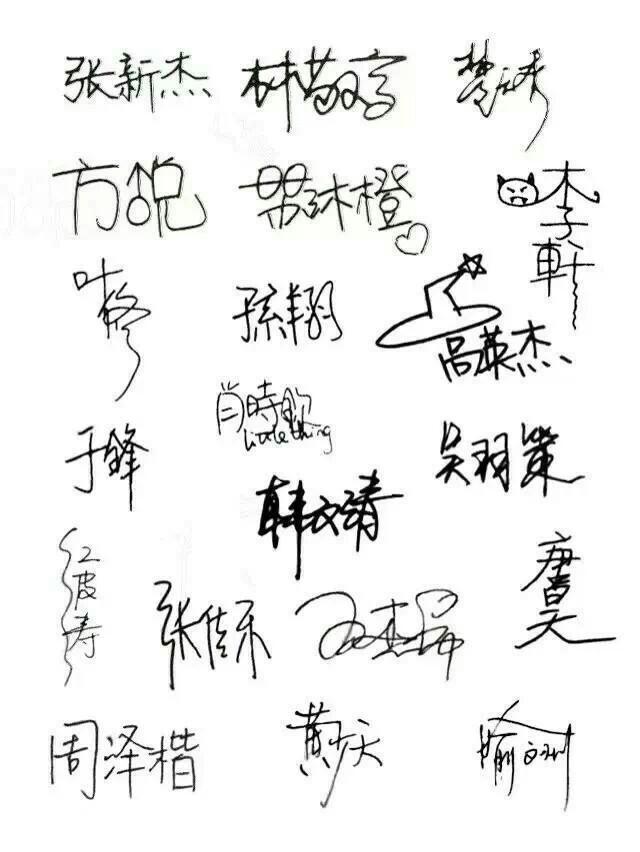 张新杰 林敬言 楚云秀
方锐 苏沐橙 李轩
叶修 孫翔 高英杰
肖時钦
Little thing
于锋 吴羽策
韩文清
江波涛 张佳乐 王杰希 唐昊
周泽楷 黄少天 喻文州